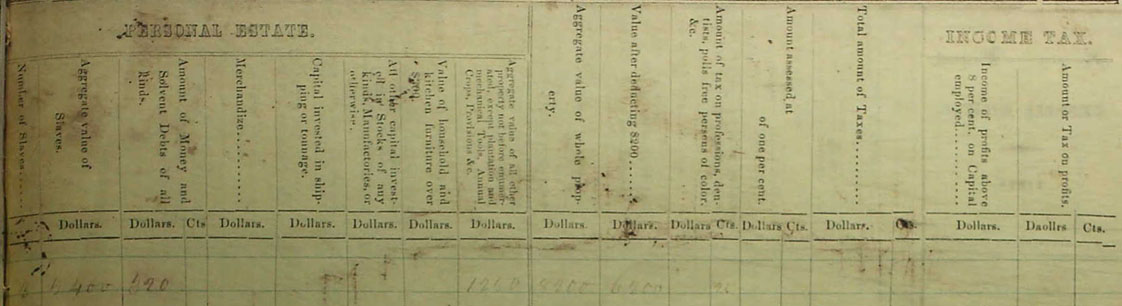 PERSONAL ESTATE.
INCOME TAX.
Number of Slaves
Aggregate value of
Slaves.
Amount of Money and
Solvent Debts of all
kinds.
Merchandize
Capital invested in ship-
ping or tonnage.
All other capital invest-
ed in Stocks of any
kinds, Manufactories, or
otherwise.
Value of household and
kitchen furniture over
Aggregate value of all other
property not before enumer-
ated, except plantation and
mechanical Tools, Annual
Crops, Provisions &c.
Aggregate value of whole prop-
erty.
Value after deducting $200
Amount of tax on professions, den-
tists, polls free persons of color,
&c.
Amount assessed at
of one per cent.
Total amount of Taxes
Income of profits above
8 per cent. on Capital
employed
Amount or Tax on profits.
Dollars. Dollars. Cts Dollars. Dollars. Dollars. Dollars. Dollars. Dollars. Dollars. Dollars Cts. Dollars Cts. Dollars. Cts. Dollars. Daollrs Cts.